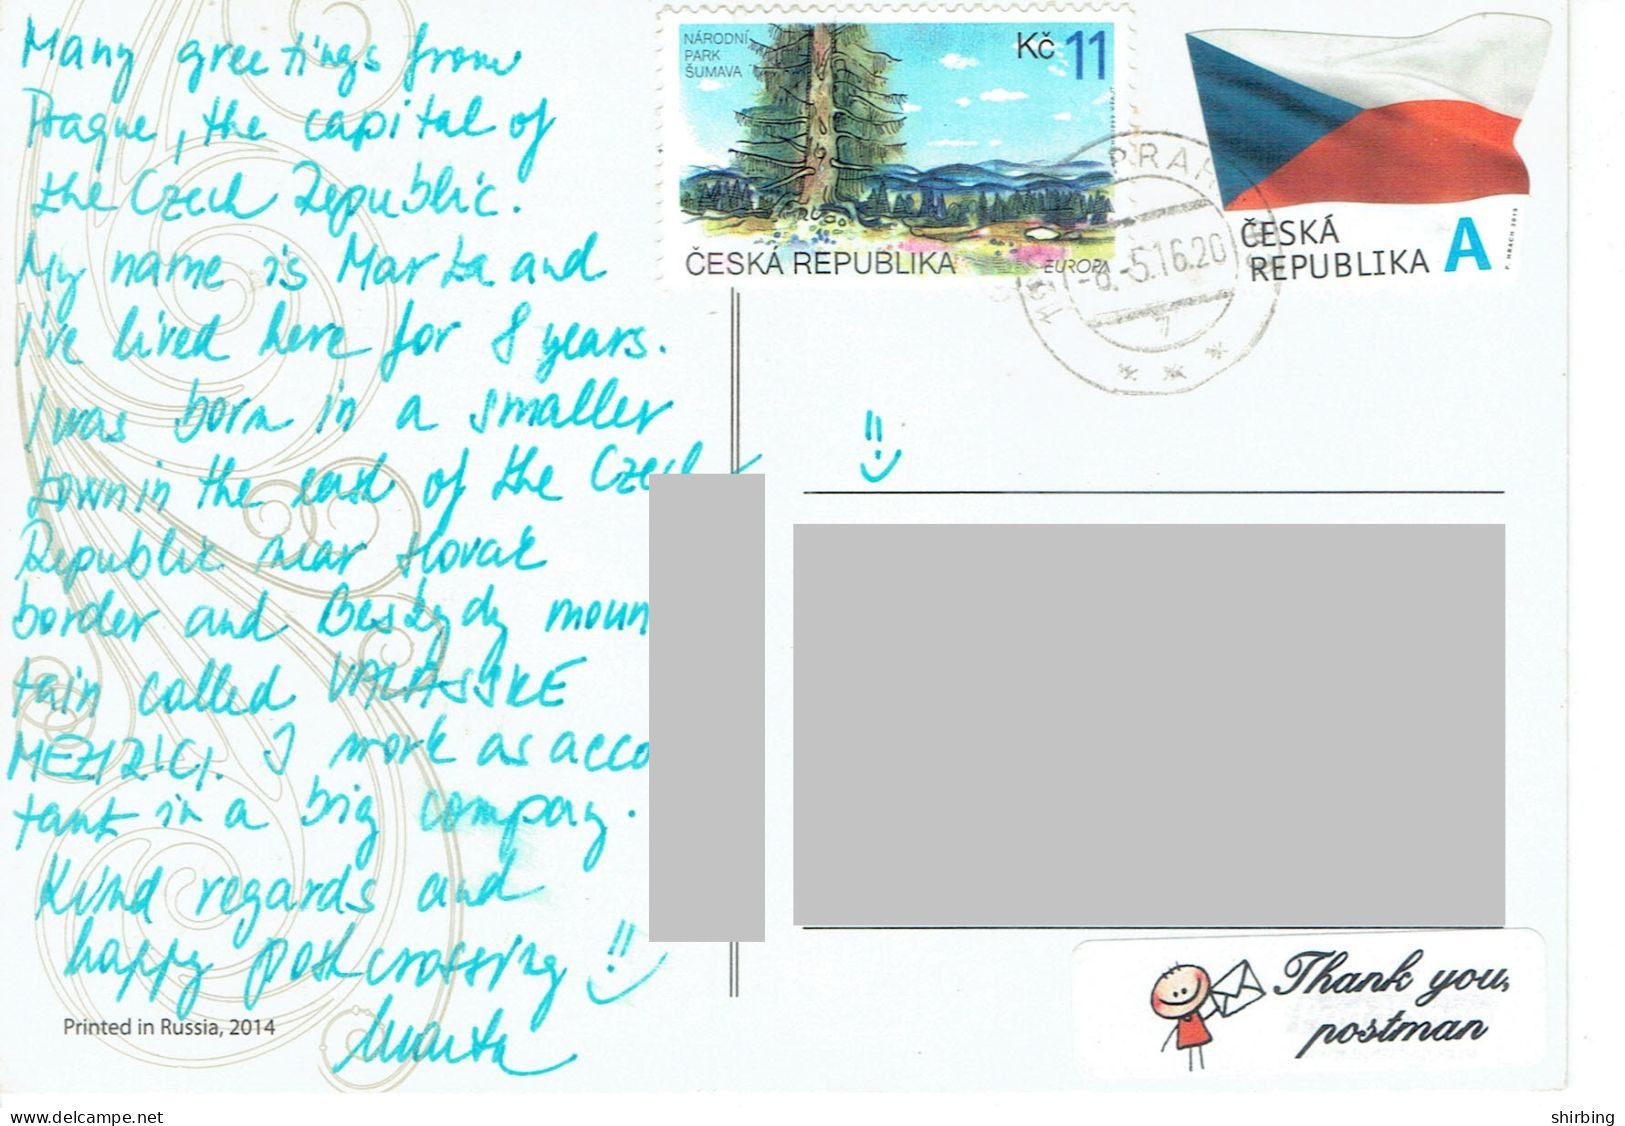 Many greetings from
Prague, the capital of
the Czech Republic.
My name is Marta and
I've lived here for 8 years.
I was born in a smaller
town in the east of the Czech
Republic near Slovak
border and Beskydy moun
tain called VALAŠSKÉ
MEZIŘÍČÍ. I work as acco
tant in a big company.
Kind regards and
happy postcrossing
Marta
Printed in Russia, 2014
NÁRODNÍ
PARK
ŠUMAVA
Kč 11
ČESKÁ REPUBLIKA
EUROPA
ČESKÁ
REPUBLIKA A
-6.-5.16.20
7
Thank you,
postman
shirbing